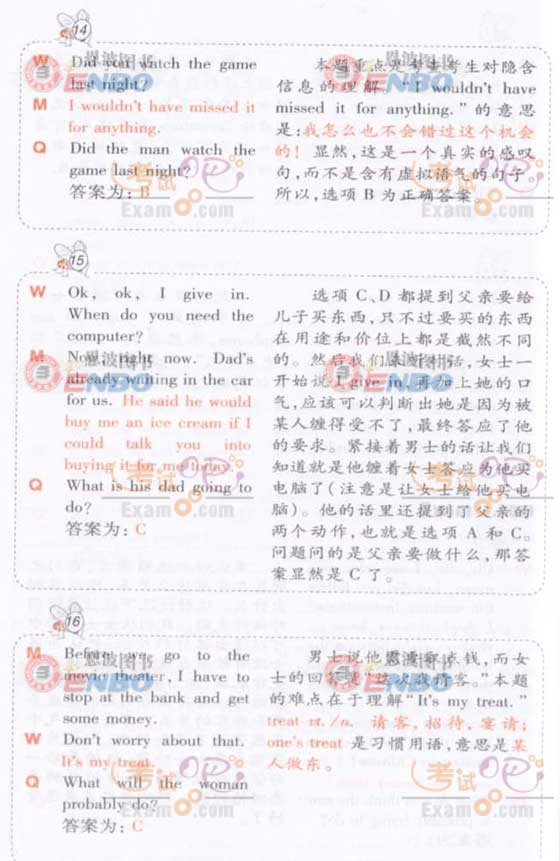 14
W Did you watch the game
last night?
M I wouldn't have missed it
for anything.
Q Did the man watch the
game last night?
答案为：B
本题重点是考查考生对隐含
信息的理解。“I wouldn't have
missed it for anything.”的意思
是：我怎么也不会错过这个机会
的！显然，这是一个真实的感叹
句，而不是含有虚拟语气的句子。
所以，选项 B 为正确答案。
15
W Ok, ok, I give in.
When do you need the
computer?
M Now, right now. Dad's
already waiting in the car
for us. He said he would
buy me an ice cream if I
could talk you into
buying it for me today.
Q What is his dad going to
do?
答案为：C
选项 C、D 都提到父亲要给
儿子买东西，只不过要买的东西
在用途和价位上都是截然不同
的。然后我们听对话，女士一
开始说 I give in，再加上她的口
气，应该可以判断出她是因为被
某人缠得受不了，最终答应了他
的要求。紧接着男士的话让我们
知道就是他缠着女士答应为他买
电脑了（注意是让女士给他买电
脑）。他的话里还提到了父亲的
两个动作，也就是选项 A 和 C。
问题问的是父亲要做什么，那答
案显然是 C 了。
16
M Before we go to the
movie theater, I have to
stop at the bank and get
some money.
W Don't worry about that.
It's my treat.
Q What will the woman
probably do?
答案为：C
男士说他要去取点钱，而女
士的回答是“这次我请客。”本题
的难点在于理解“It's my treat.”
treat vt./n. 请客，招待，宴请；
one's treat 是习惯用语，意思是某
人做东。
恩波图书
ENBO
恩波图书
ENBO
考试吧
Exam8.com
考试吧
Exam8.com
恩波图书
ENBO
恩波图书
ENBO
考试吧
Exam8.com
考试吧
Exam8.com
恩波图书
ENBO
恩波图书
ENBO
考试吧
Exam8.com
考试吧
Exam8.com